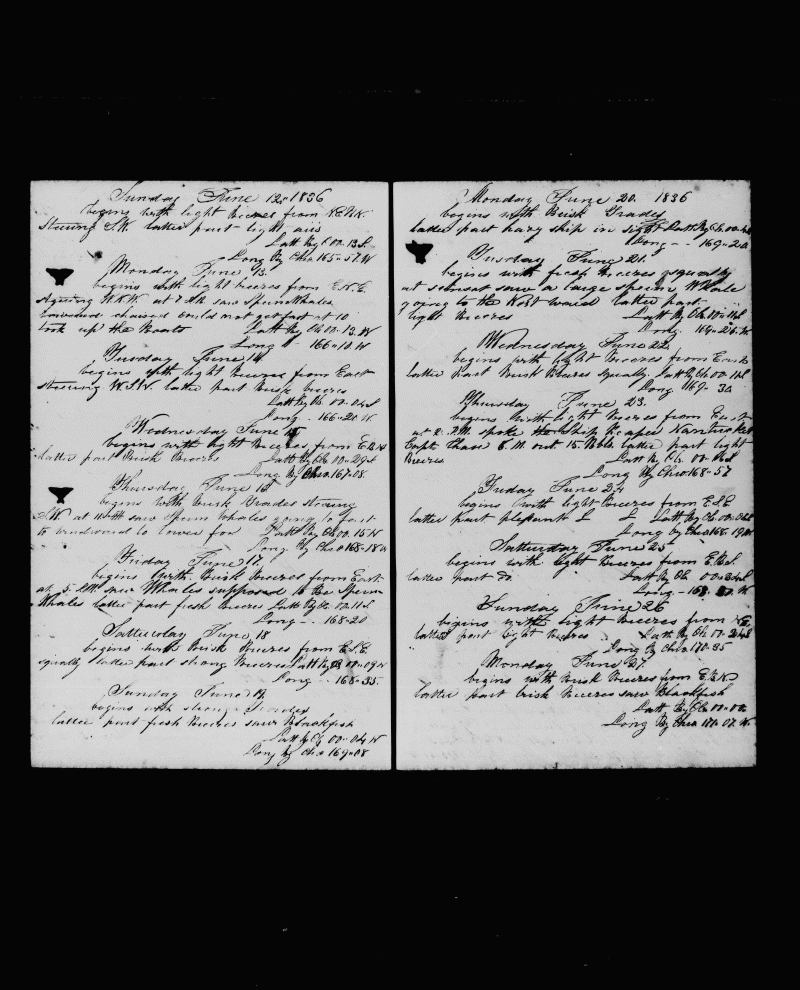 Sunday June 12 1836
begins with light breezes from N.E.N.
Steering S.W. latter part light airs
Latt By C 00-13 S
Long By Chro 165-57 W
Monday June 13
begins with light breezes from E.N.E
Steering W.N.W. at 7 AM saw Sperm Whales
Lowered chased could not get fast at 10
took up the Boats Latt By Ch 00-13 N
Long " 166-10 W
Tuesday June 14
begins with light breezes from East
steering W.S.W. latter part Brisk breezes
Latt By Ch 00-04 S
Long - 166-20 W
Wednesday June 15
begins with light Breezes from E.B.N
latter part Brisk Breezes Latt By Ch 00-29
Long By Chro 167-08
Thursday June 16
begins with Brisk trades steering
S.W at saw Sperm Whales going to fast
to windward to lower for Latt By Ch 00-15 N
Long By Chro 168-18
Friday June 17
begins with Brisk Breezes from East
at 5 PM saw Whales supposed to be Sperm
Whales latter part fresh Breezes Latt By Ch 00-11 S
Long - 168-20
Satturday June 18
begins with Brisk Breezes from E.S.E
squally latter part strong Breezes Latt By Ch 00-09 N
Long 168-35
Sunday June 19
begins with strong
latter part fresh Breezes saw Blackfish
Latt By Ch 00-04 N
Long By Chro 169-08
Monday June 20 1836
begins with Brisk Trades
latter part hazy ship in sight Latt By Ch 00-4
Long - - 169-20
Tusday June 21
begins with fresh Breezes squally
at sunset saw a large Sperm Whale
going to the Nort ward latter part
light Breezes Latt By Ch 00-11 S
Long 169-26 W
Wednesday June 22
begins with light Breezes from East
latter part Brisk Breezes squally Latt By Ch 00-11 S
Long 169-30
Thursday June 23
begins with light Breezes from East
at 2 P.M. spoke the ship Reaper Nantucket
Capt Chase 8 M out 15 Bbls latter part light
Breezes Latt By Ch 00-
Long By Chro 168-57
Friday June 24
begins with light breezes from E.S.E
latter part pleasant Latt By Ch 00-04 S
Long by Chro 168-19 W
Satturday June 25
begins with light Breezes from E.B.S
latter part Do. Latt By Ch 00-34 S
Long - 168- W
Sunday June 26
begins with light breezes from N.E
latter part light Breezes Latt By Ch 00-24 S
Long By Chro 170-35
Monday June 27
begins with Brisk Breezes from E.B.N
latter part brisk Breezes saw Blackfish
Latt By Ch 00-02
Long By Chro 171-07 W